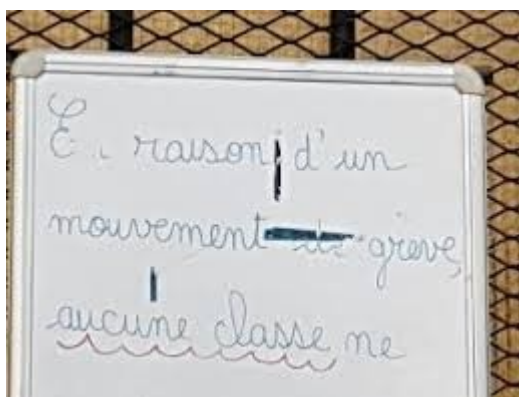 raison d'un
mouvement grève,
aucune classe ne